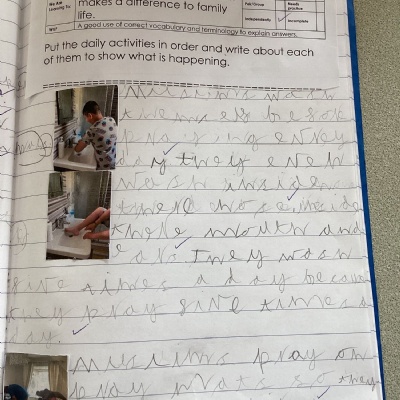 We Are Learning To
makes a difference to family life.
Pair/Group
Needs practice
Independently
Incomplete
WILF
A good use of correct vocabulary and terminology to explain answers.
Put the daily activities in order and write about each
of them to show what is happening.
muslims wash
themselfs before
every
day they even
wash inside
there nose inside
there mouth and
ears they wash
five times a day because
they pray five times a
day.
muslims pray on
pray mats so they